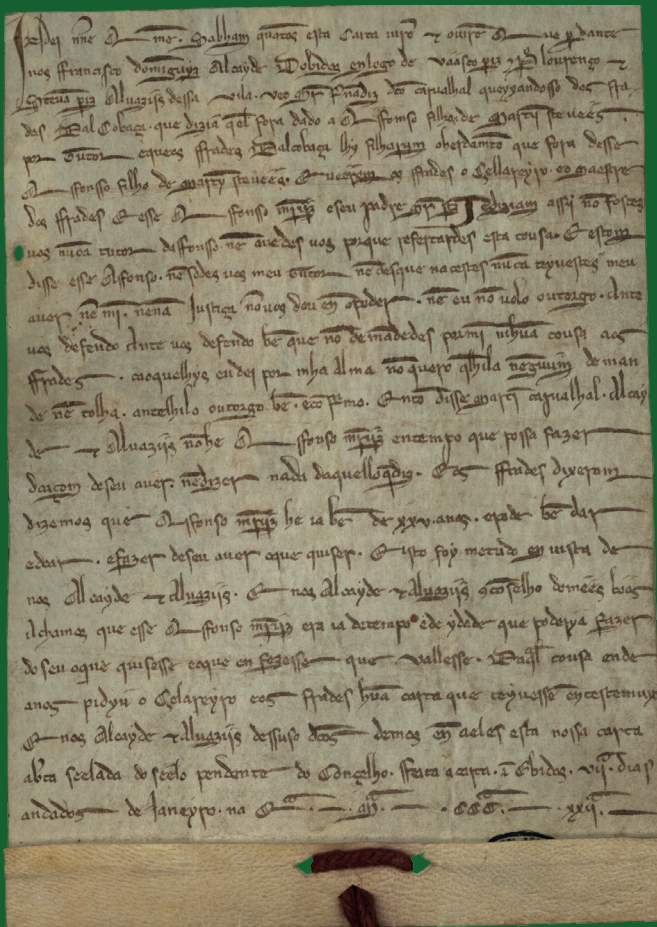 Jn dei nne Amen. Sabham quantos esta Carta virẽ & ouvirẽ Que perdante
nos ffrancisco dominguiz Alcayde Dobidos en logo de vaasco periz & Pº lourenço &
Steuã periz Aluaziis dessa vila. veo Mr Fernãdiz dcõ carualhal queyxandosso dos fra
des Dal Cobaça. que diziã q el fora dado a Affonso filho de Martĩ steuẽes.
por Tutor e queos ffrades Dalcobaça lhy filharum o herdamẽto que fora desse
Affonsso filho de Martỹ steuẽes. E veerõm os ffrades o Cellareyro. e o Maestre
dos ffrades E esse Affonso mrĩiz e seu padre diziam assi nõ fostes
uos nũca tutor daffonso. nẽ auedes uos porque refertardes esta cousa. E estom
disse esse Affonso. nẽ sodes uos meu Tutor nẽ desque nacestes nũca teyuestes meu
auer nẽ mi. nena Justiça nõ uos deu en poder. nẽ eu nõ uolo outorgo. Ante
uos defendo Ante uos defendo bẽ que nõ demãdedes por mi nihũa cousa aos
ffrades. caoquelhys eu dei por mha alma nõ quero q lhila neguum deman
de nẽ tolha. antelhilo outorgo bẽ. Entõ disse Martĩ carualhal. Alcay
de & Aluaziis nõ he Affonso mrĩiz en tempo que possa fazer
doaçom de seu auer. nẽ dizer nada daquello q diz. E os ffrades dixerom
dizemos que Affonso mrĩiz he ia bẽ de xxv. anos. e pode bẽ dar
e doar. e fazer de seu auer o que quiser. E isto foy metudo en uista de
nos Alcayde & Aluaziis. E nos Alcayde & Aluaziis cõ cõselho domẽes bõos
Achamos que esse Affonso mrĩiz era ia de tempo e de ydade que poderya fazer
do seu o que quisesse e o que en fezesse que vallesse. Daql cousa ende
anos pidyu o Celareyro e os frades hũa carta que teyuessẽ en testemuyo
E nos Alcayde & Aluaziis dessuso dctos demos en a eles esta nossa carta
abta seelada do seelo pendente do Conçelho. ffeita a carta. ĩ Obidos. vij. dias
andados de Janeyro. na Era. M. CCC. xxij.